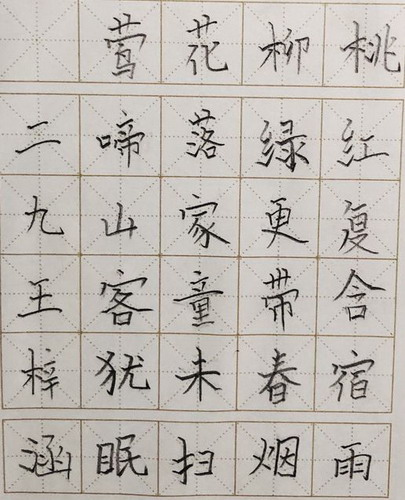 桃红复含宿雨
柳绿更带春烟
花落家童未扫
莺啼山客犹眠
二九王梓涵